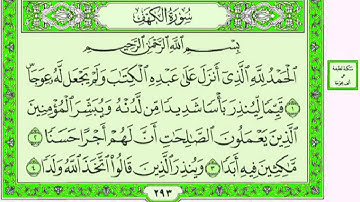 سُورَةُ الْكَهْفِ
بِسْمِ اللَّهِ الرَّحْمَٰنِ الرَّحِيمِ
الْحَمْدُ لِلَّهِ الَّذِي أَنزَلَ عَلَىٰ عَبْدِهِ الْكِتَٰبَ وَلَمْ يَجْعَل لَّهُ عِوَجَا
قَيِّمًا لِّيُنذِرَ بَأْسًا شَدِيدًا مِّن لَّدُنْهُ وَيُبَشِّرَ الْمُؤْمِنِينَ ١
الَّذِينَ يَعْمَلُونَ الصَّٰلِحَٰتِ أَنَّ لَهُمْ أَجْرًا حَسَنًا ٢
مَّٰكِثِينَ فِيهِ أَبَدًا ٣ وَيُنذِرَ الَّذِينَ قَالُوا اتَّخَذَ اللَّهُ وَلَدًا ٤
٢٩٣